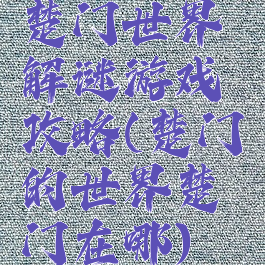 楚门世界
解谜游戏
攻略(楚门
的世界楚
门在哪)